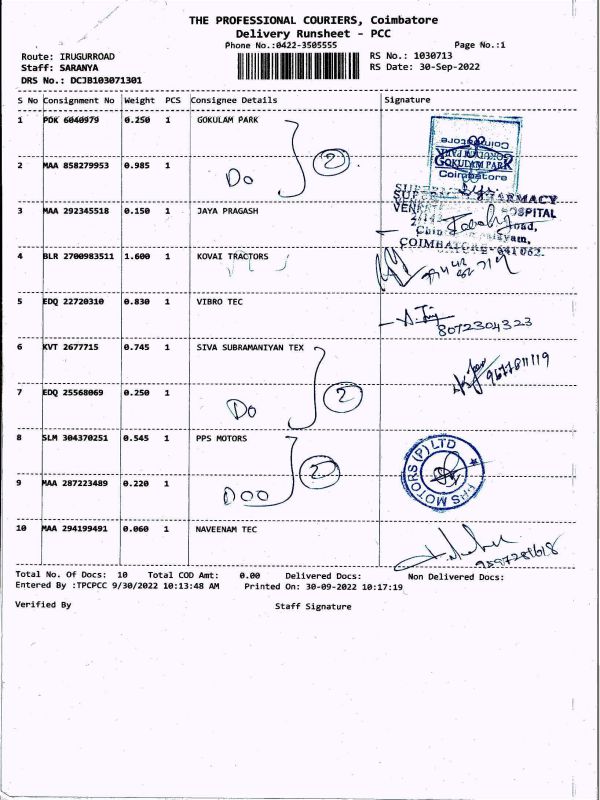 THE PROFESSIONAL COURIERS, Coimbatore
Delivery Runsheet - PCC
Phone No.:0422-3505555 Page No.:1
Route: IRUGURROAD RS No.: 1030713
Staff: SARANYA RS Date: 30-Sep-2022
DRS No.: DCJB103071301
S No Consignment No Weight PCS Consignee Details Signature
1 PDK 6040979 0.250 1 GOKULAM PARK
GOKULAM PARK
Coimbatore
2 MAA 858279953 0.985 1 Do 2
PHARMACY
HOSPITAL
3 MAA 292345518 0.150 1 JAYA PRAGASH
COIMBATORE-641 062.
4 BLR 2700983511 1.600 1 KOVAI TRACTORS
5 EDQ 22720310 0.830 1 VIBRO TEC
8072304323
6 KVT 2677715 0.745 1 SIVA SUBRAMANIYAN TEX
7 EDQ 25568069 0.250 1 Do 2
8 SLM 304370251 0.545 1 PPS MOTORS
PPS MOTORS (P) LTD
9 MAA 287223489 0.220 1 Doo 2
10 MAA 294199491 0.060 1 NAVEENAM TEC
Total No. Of Docs: 10 Total COD Amt: 0.00 Delivered Docs: Non Delivered Docs:
Entered By :TPCPCC 9/30/2022 10:13:48 AM Printed On: 30-09-2022 10:17:19
Verified By Staff Signature